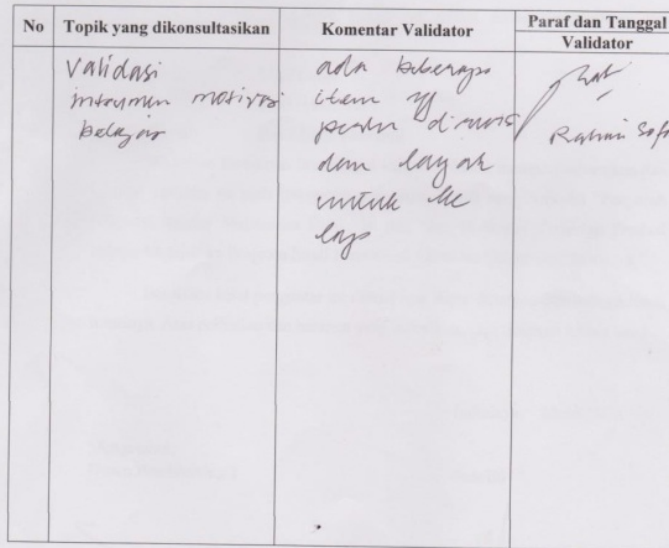 No Topik yang dikonsultasikan Komentar Validator Paraf dan Tanggal
Validator
Validasi
instrumen motivasi
belajar
ada beberapa
item yg
perlu direvisi
dan layak
untuk ke
lap